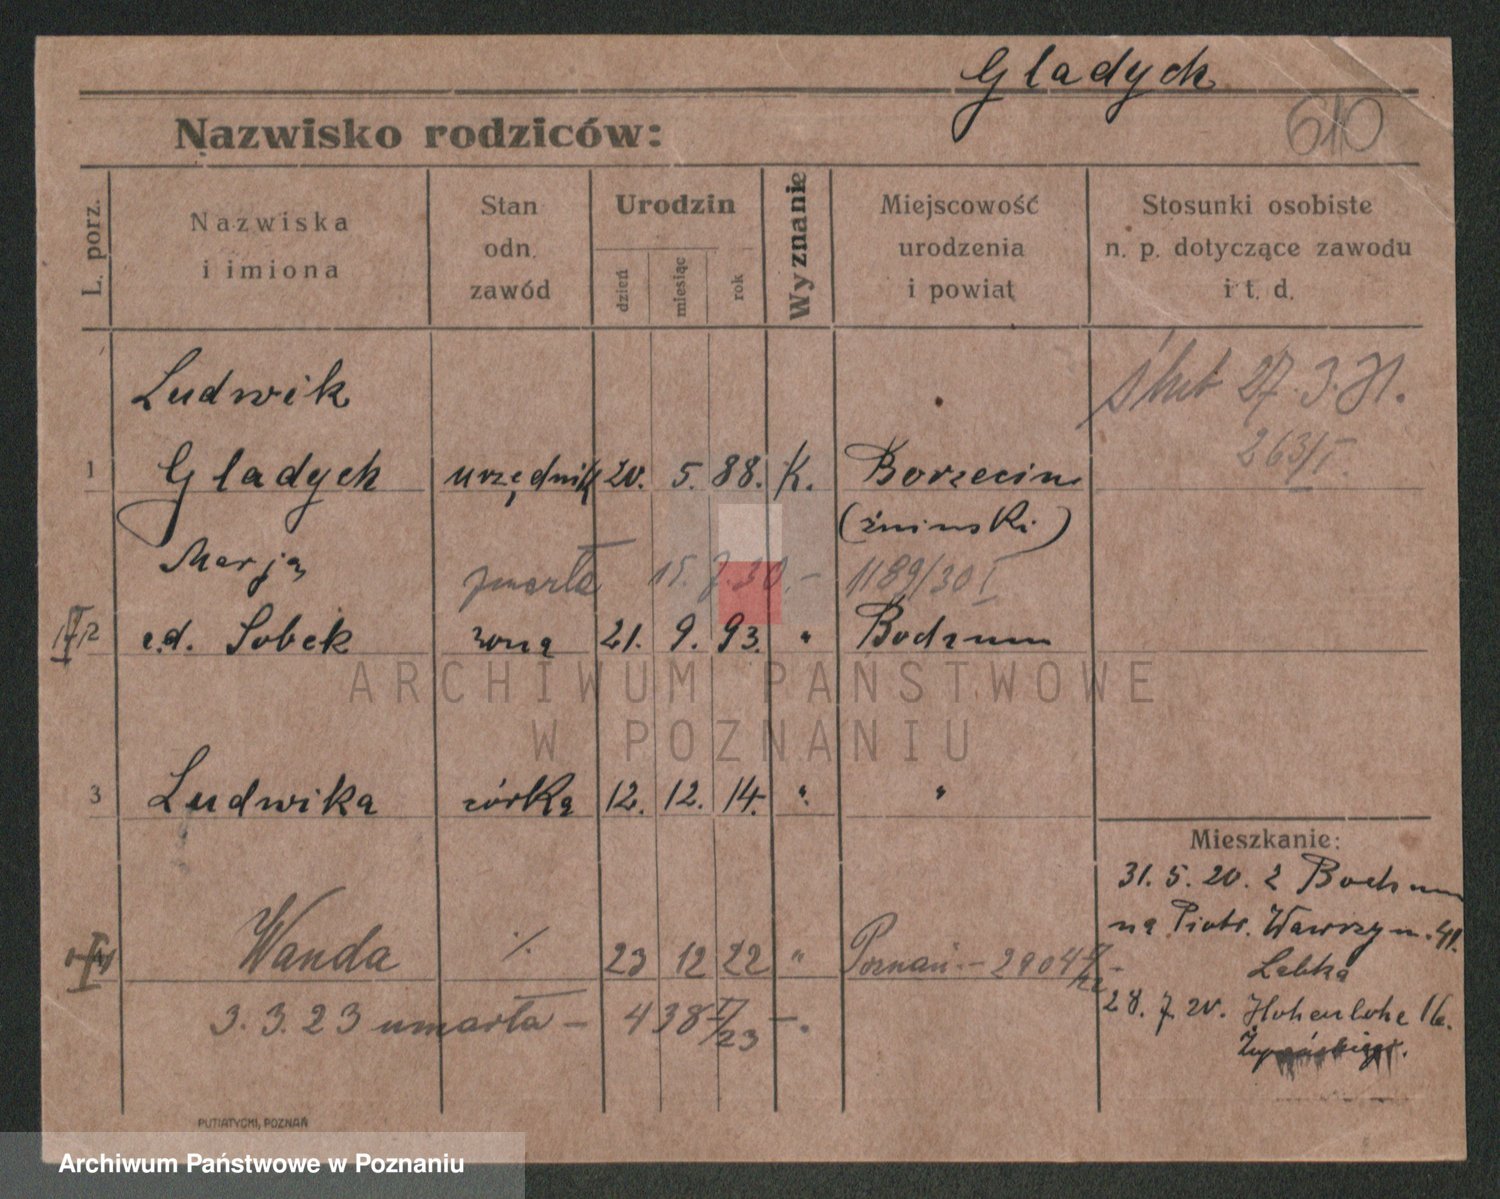 Gladych
610
Nazwisko rodziców:
L. porz.
Nazwiska
i imiona
Stan
odn.
zawód
Urodzin
dzień
miesiąc
rok
Wyznanie
Miejscowość
urodzenia
i powiat
Stosunki osobiste
n. p. dotyczące zawodu
i t. d.
Ludwik
27. 3. 31.
263/I.
1 Gladych urzędnik 20. 5. 88. K. Borzecin
(żninski)
Marja zmarła 15. 7. 30. – 1189/30 I
2 z.d. Sobek żona 21. 9. 93. " Bochum
ARCHIWUM PAŃSTWOWE
W POZNANIU
3 Ludwika córka 12. 12. 14. " "
Mieszkanie:
31. 5. 20. z Bochum
na Piotr. Wawrzyn. 41.
Lebka
Wanda ./. 23 12 22 " Poznań. – 2904
28. 7. 20. Hohenlohe 16.
3. 3. 23 umarła – 438 I/23 –.
PUTIATYCKI, POZNAŃ
Archiwum Państwowe w Poznaniu